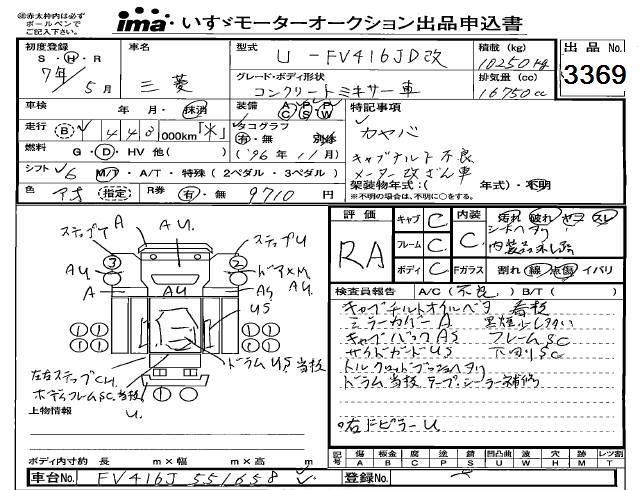 ※赤太枠内は必ず
ボールペンで
ご記入下さい。
ima いすゞモーターオークション出品申込書
初度登録 S・H・R 7年 5月
車名 三菱
型式 U-FV416JD改
積載 (kg) 10250kg
出品 No. 3369
グレード・ボディ形状 コンクリートミキサー車
排気量 (cc) 16750cc
車検 年 月・抹消
装備 AC PS PW
特記事項
カヤバ
走行 B 443 000km「米」
タコグラフ 有・無 別体
('96年 11月)
キャブチルト不良
メーター改ざん車
燃料 G・D・HV 他( )
シフト 6 M/T・A/T・特殊(2ペダル・3ペダル)
架装物年式:( 年式)・不明
※不明の場合は、不明に○をする。
色 アオ 指定 R券 有・無 9710円
評価 RA
キャブ C
フレーム C
ボディ C
内装 C
汚れ 破れ ヤケ スレ
シートヘタリ
Fガラス 割れ 線 点傷 イバリ
検査員報告 A/C(不良)B/T( )
キャブチルトオイルベタ 看板
ミラーカバーA
キャブバックAS フレームSC
サイドガードUS 下廻りSC
ドラム当板テープ・シーラー補修
ステップA
AU.
ステップU
3
2
AU
A
AU
AS
AU.
US
1 1
1 1
1 1
1 1
ドラムUS当板
左右ステップCH.
ボディフレームSC.当板
U.
上物情報
ボディ内寸約 長 m×幅 m×高 m
記号 傷A 板金B 腐C 塗P 錆S 凹凸曲U 波W 穴H 跡M レツ割T
車台No. FV416J 551658
登録No.